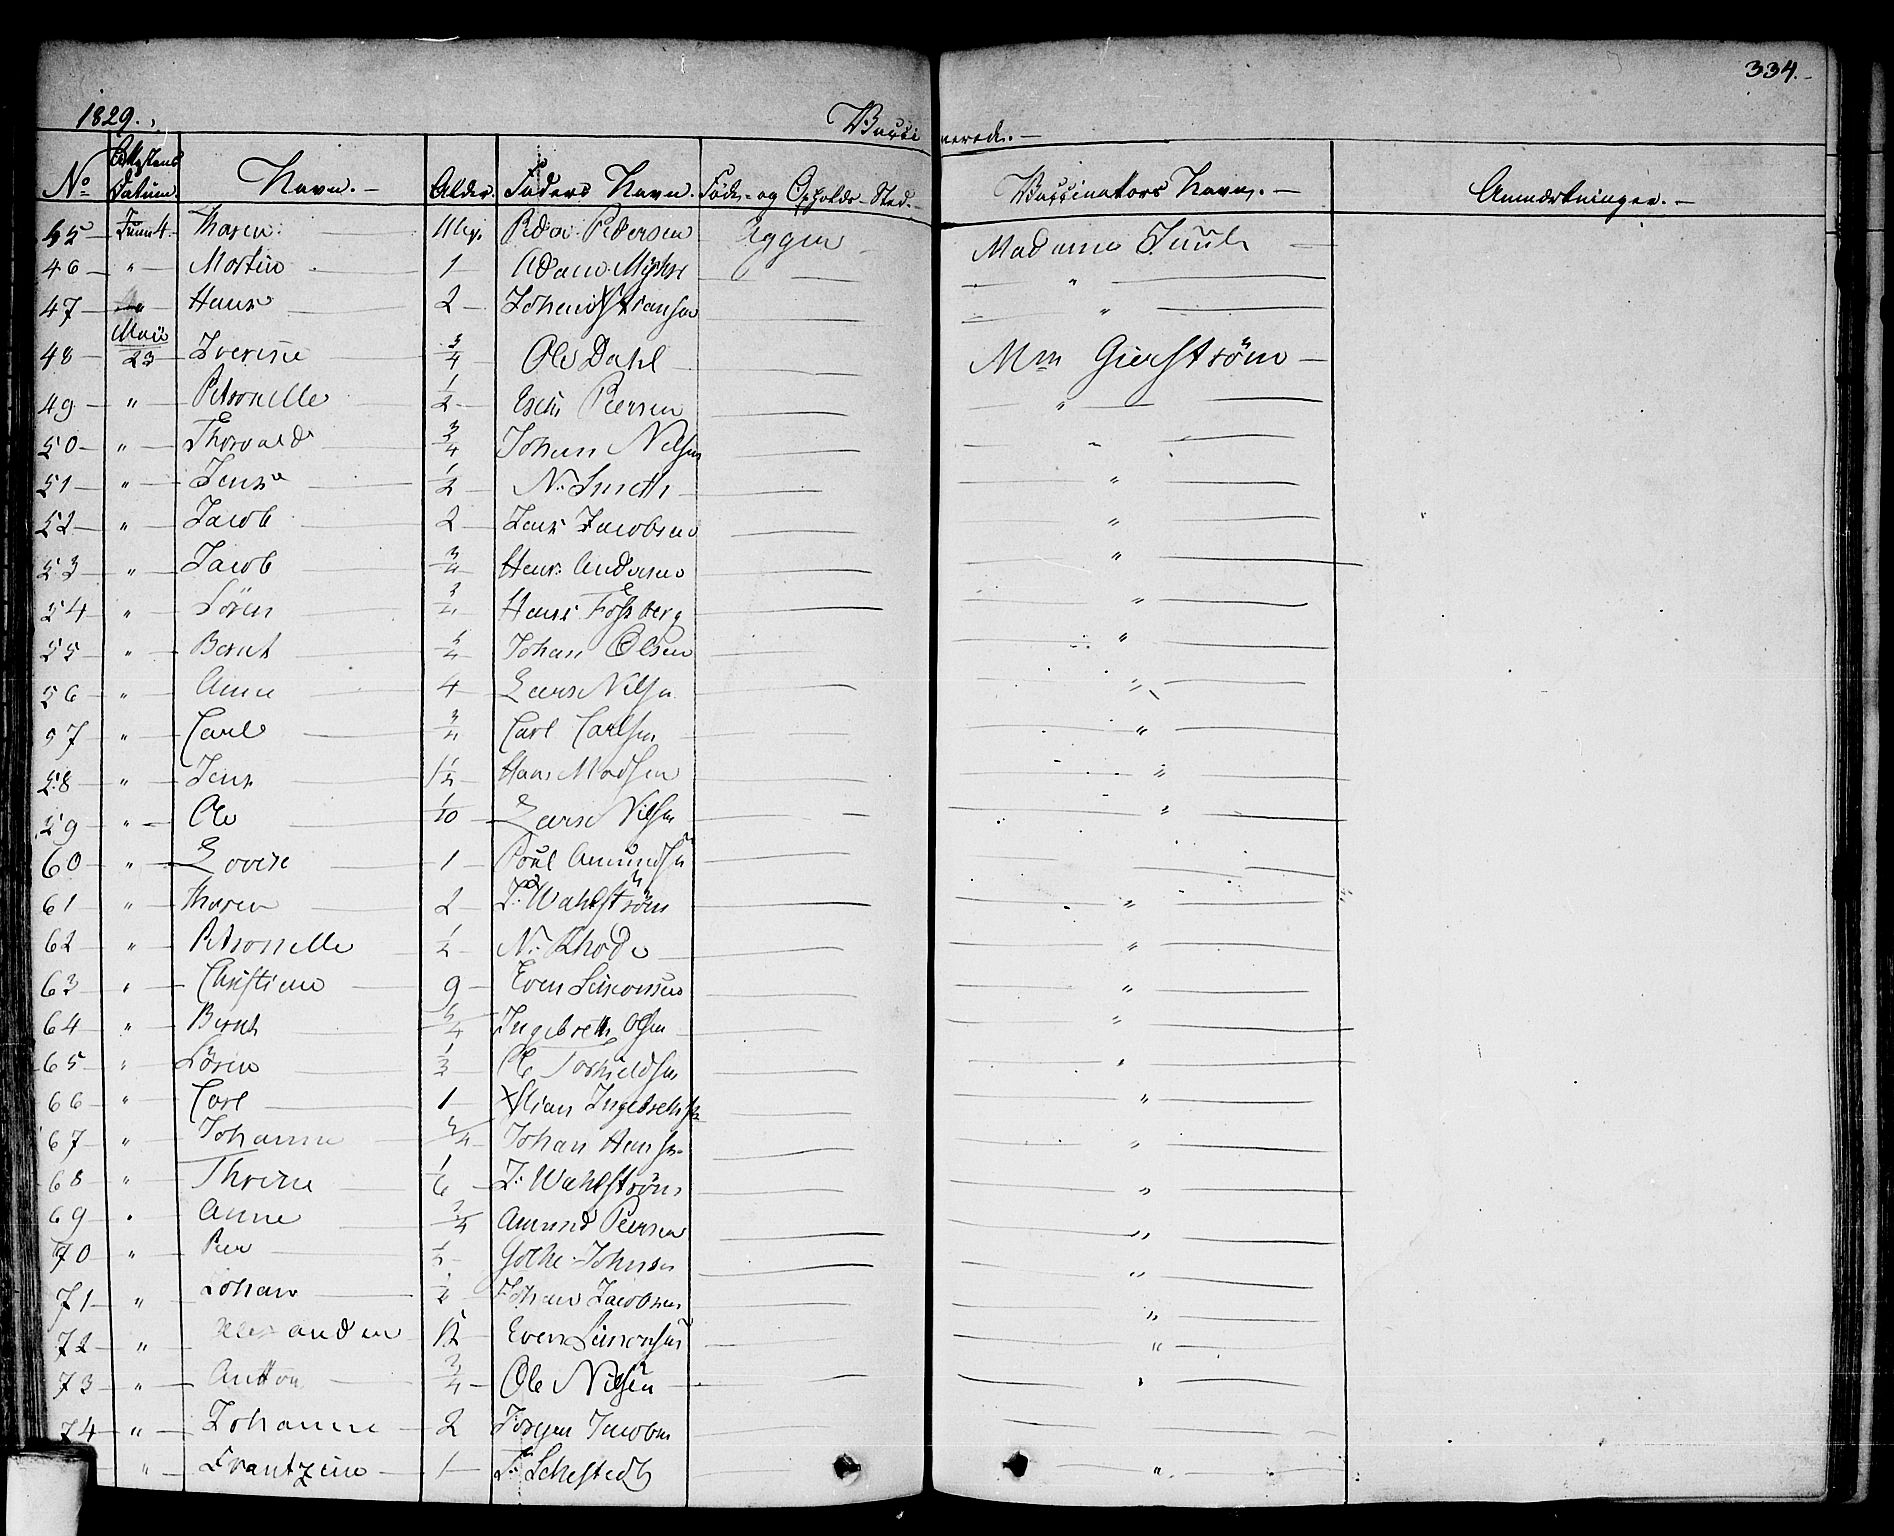 334.
1829.
Vacci nerede.
No Attestens Datum. Navn. Alder. Faders Navn. Føde- og Opholds Sted. Vaccinators Navn. Anmærkninger.
45 Maren Peder Pedersen Aggen Madame Juul
46 " Martin 1 Adam "
47 " Hans 2 "
48 Maii 23 3/4 Ole Dahl Mm Gierstrøm
49 " Petronelle 1/2 Peersen "
50 " Thorvald 3/4 Johan Nilsen "
51 " Jens 1/2 N. Smith "
52 " Jacob 2 Jens Jacobsen "
53 " Jacob 3/4 Hans Andersen "
54 " Søren 3/4 Hans Fossberg "
55 " Bernt 3/4 Johan Olsen "
56 " Anne 4 Lars Nilsen "
57 " Carl 3/4 Carl Carlsen "
58 " Jens 1 1/2 Hans Madsen "
59 " Ole 1/10 Lars Nilsen "
60 " Lovise 1 Poul Amundsen
61 " Maren 2 J. Wahlstrøm "
62 " Petronelle 1/2 N. Rhode "
63 " Christiane 9 Even Simonsen "
64 " Bernt Ingebreth Olsen "
65 " Søren Ole "
66 " Carl 1 Ingebrethsen "
67 " Johanne 3/4 Johan Hansen "
68 " Thrine 1/6 J. Wahlstrøm "
69 " Anne 3/4 Amund Peersen "
70 " Peer 1/2 Gothe Johnsen "
71 " Johan Johan Jacobsen "
72 " Alexander 12 Even Simonsen "
73 " Anthon 3/4 Ole Nilsen "
74 " Johanne 2 Jørgen Jacobsen
" Frantzine 1 "